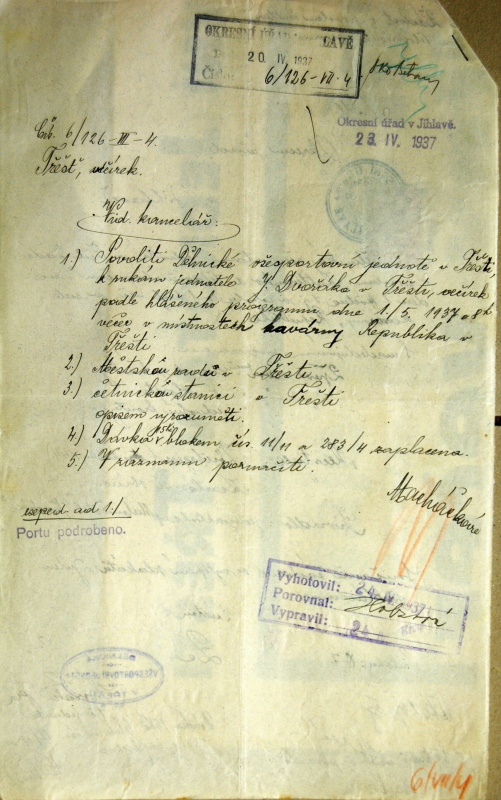 OKRESNÍ ÚŘAD JIHLAVĚ
20 IV. 1937
Číslo 6/126-VII-4
Okresní úřad v Jihlavě.
23. IV. 1937
Čís. 6/126-VII-4.
Třešť, večírek.
Vid. kancelář:
1.) Povoliti Dělnické všesportovní jednotě v Třešti,
k rukám jednatele J. Dvořáka v Třešti, večírek
podle hlášeného programu dne 1./5. 1937 o 8h
večer v místnostech kavárny Republika v
Třešti
2.) Městskou radu v Třešti
3.) četnickou stanici v Třešti
opisem vyrozuměti.
4.) Dávka blokem čís. 11/11 a 283/4 zaplacena.
5.) V záznamu poznačiti.
Macháčková
exped. ad 1./
Portu podrobeno.
Vyhotovil: 24. IV. 1937
Porovnal:
Vypravil: 24
VŠESPORTOVNÍ JEDNOTA